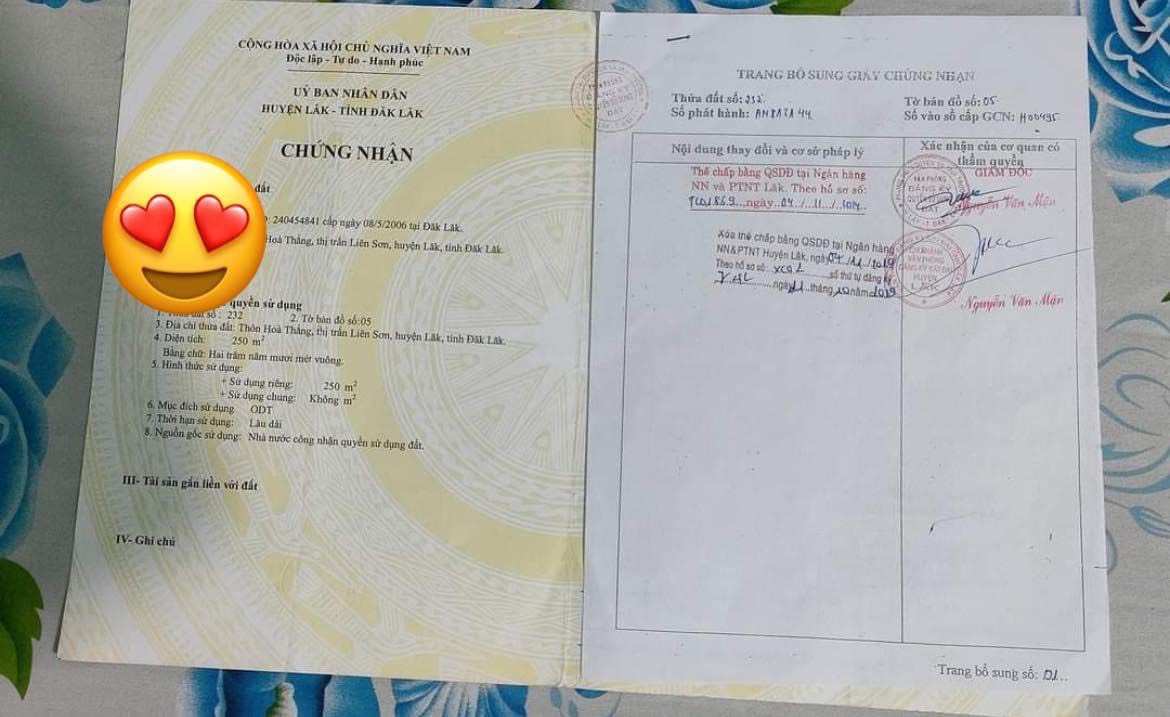 CỘNG HÒA XÃ HỘI CHỦ NGHĨA VIỆT NAM
Độc lập - Tự do - Hạnh phúc
UỶ BAN NHÂN DÂN
HUYỆN LẮK - TỈNH ĐĂK LĂK
CHỨNG NHẬN
đất
: 240454841 cấp ngày 08/5/2006 tại Đăk Lăk.
Hoà Thắng, thị trấn Liên Sơn, huyện Lăk, tỉnh Đăk Lăk.
quyền sử dụng
1. Thửa đất số : 232 2. Tờ bản đồ số:05
3. Địa chỉ thửa đất: Thôn Hoà Thắng, thị trấn Liên Sơn, huyện Lăk, tỉnh Đăk Lăk.
4. Diện tích: 250 m²
Bằng chữ: Hai trăm năm mươi mét vuông.
5. Hình thức sử dụng:
+ Sử dụng riêng: 250 m²
+ Sử dụng chung: Không m²
6. Mục đích sử dụng ODT
7. Thời hạn sử dụng: Lâu dài
8. Nguồn gốc sử dụng: Nhà nước công nhận quyền sử dụng đất.
III- Tài sản gắn liền với đất
IV- Ghi chú
TRANG BỔ SUNG GIẤY CHỨNG NHẬN
Thửa đất số: 232. Tờ bản đồ số: 05
Số phát hành: Số vào sổ cấp GCN: H00495
Nội dung thay đổi và cơ sở pháp lý
Xác nhận của cơ quan có
thẩm quyền
Thế chấp bằng QSDĐ tại Ngân hàng
NN và PTNT Lăk. Theo hồ sơ số:
ngày 04 / 11 /
GIÁM ĐỐC
VĂN PHÒNG
ĐĂNG KÝ
QUYỀN SỬ DỤNG
ĐẤT
Nguyễn Văn Mận
Xóa thế chấp bằng QSDĐ tại Ngân hàng
NN&PTNT Huyện Lăk, ngày 04/11/2019
Theo hồ sơ số: số thứ tự đăng ký
ngày 11 tháng 10 năm 2019
CHI NHÁNH
VĂN PHÒNG
ĐĂNG KÝ ĐẤT ĐAI
HUYỆN
LĂK
Nguyễn Văn Mận
Trang bổ sung số: 01...